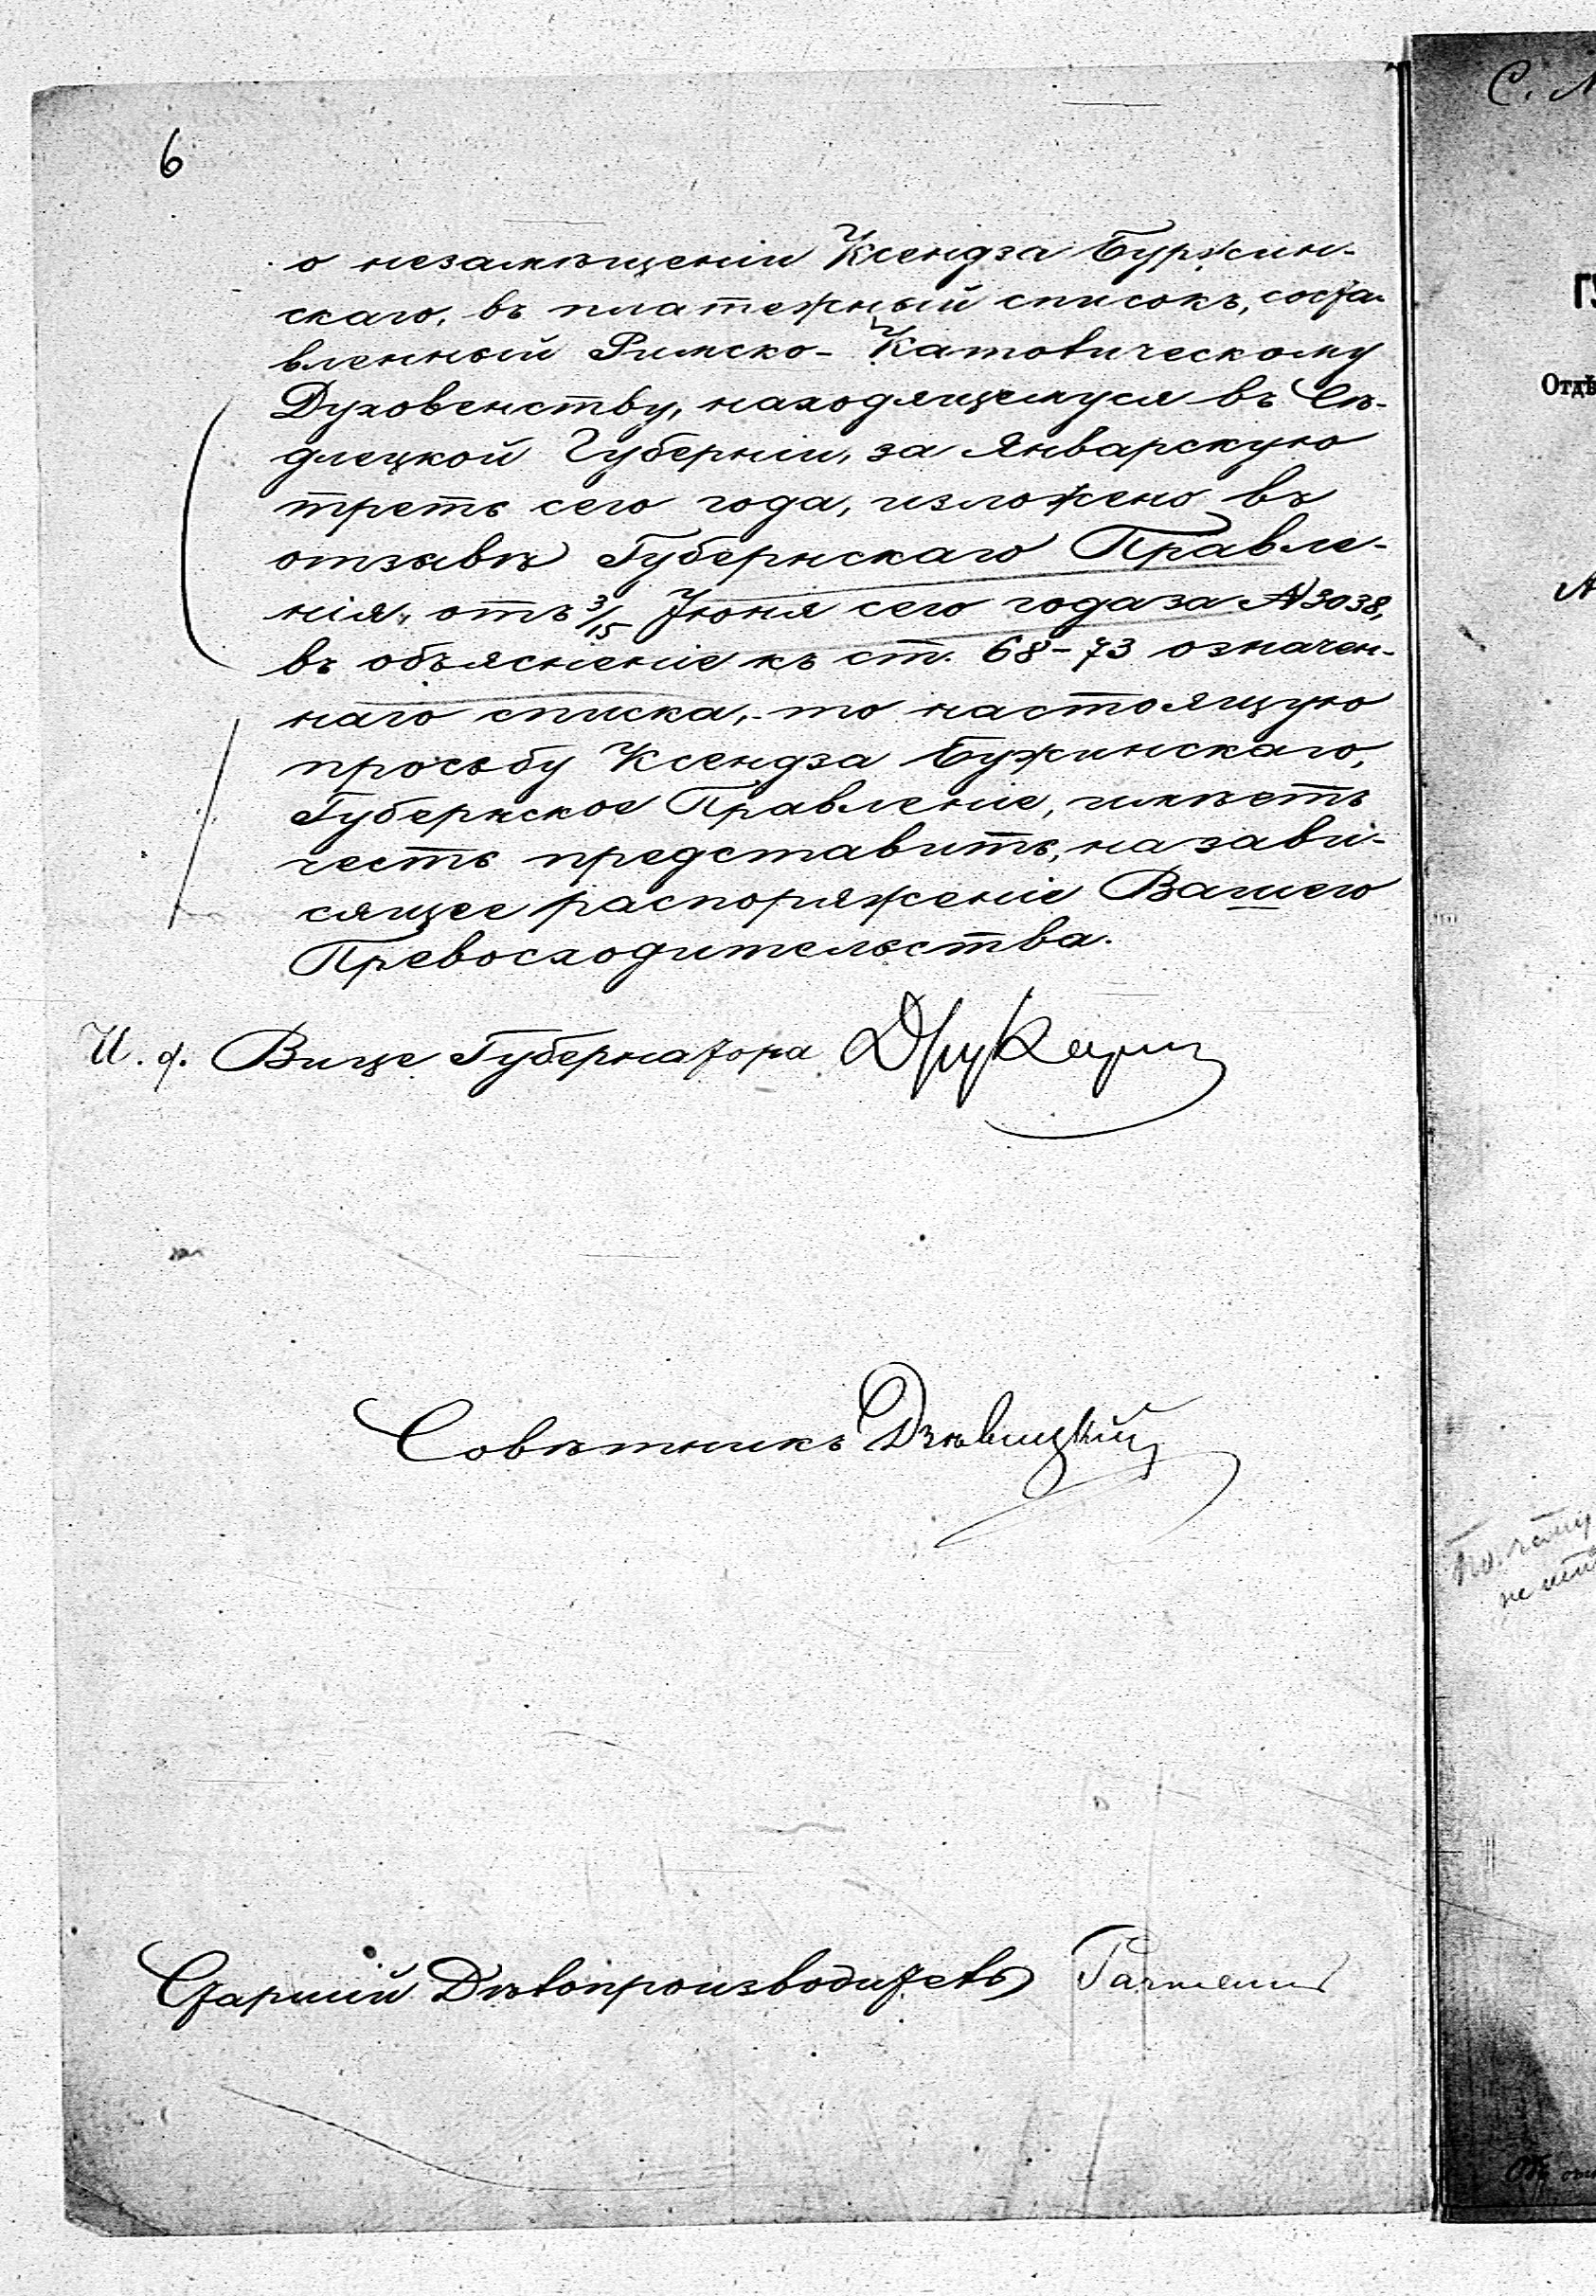 6
о незамѣщеніи Ксендза Буржин-
скаго, въ платежный списокъ, соста-
вленный Римско-Католическому
Духовенству, находящемуся въ Сѣ-
длецкой Губерніи, за Январскую
треть сего года, изложено въ
отзывѣ Губернскаго Правле-
нія, отъ 3/15 Іюня сего года за № 3038,
въ объясненіе къ ст. 68-73 означен-
наго списка, то настоящую
просьбу Ксендза Бужинскаго,
Губернское Правленіе, имѣетъ
честь представить, на зави-
сящее распоряженіе Вашего
Превосходительства.
И. д. Вице Губернатора
Совѣтникъ
Старшій Дѣлопроизводитель
С.
ГУ
Отдѣ
№
По чему